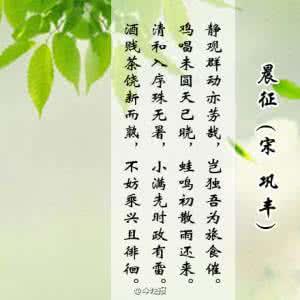 晨征(宋 巩丰)
静观群动亦劳哉,岂独吾为旅食催。
鸡唱未圆天已晓,蛙鸣初散雨还来。
清和入序殊无暑,小满先时政有雷。
酒贱茶饶新而熟,不妨乘兴且徘徊。
@今晚报